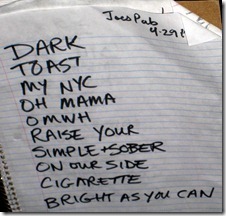 Joes Pub
4-29
DARK
TOAST
MY NYC
OH MAMA
OMWH
RAISE YOUR
SIMPLE + SOBER
ON OUR SIDE
CIGARETTE
BRIGHT AS YOU CAN